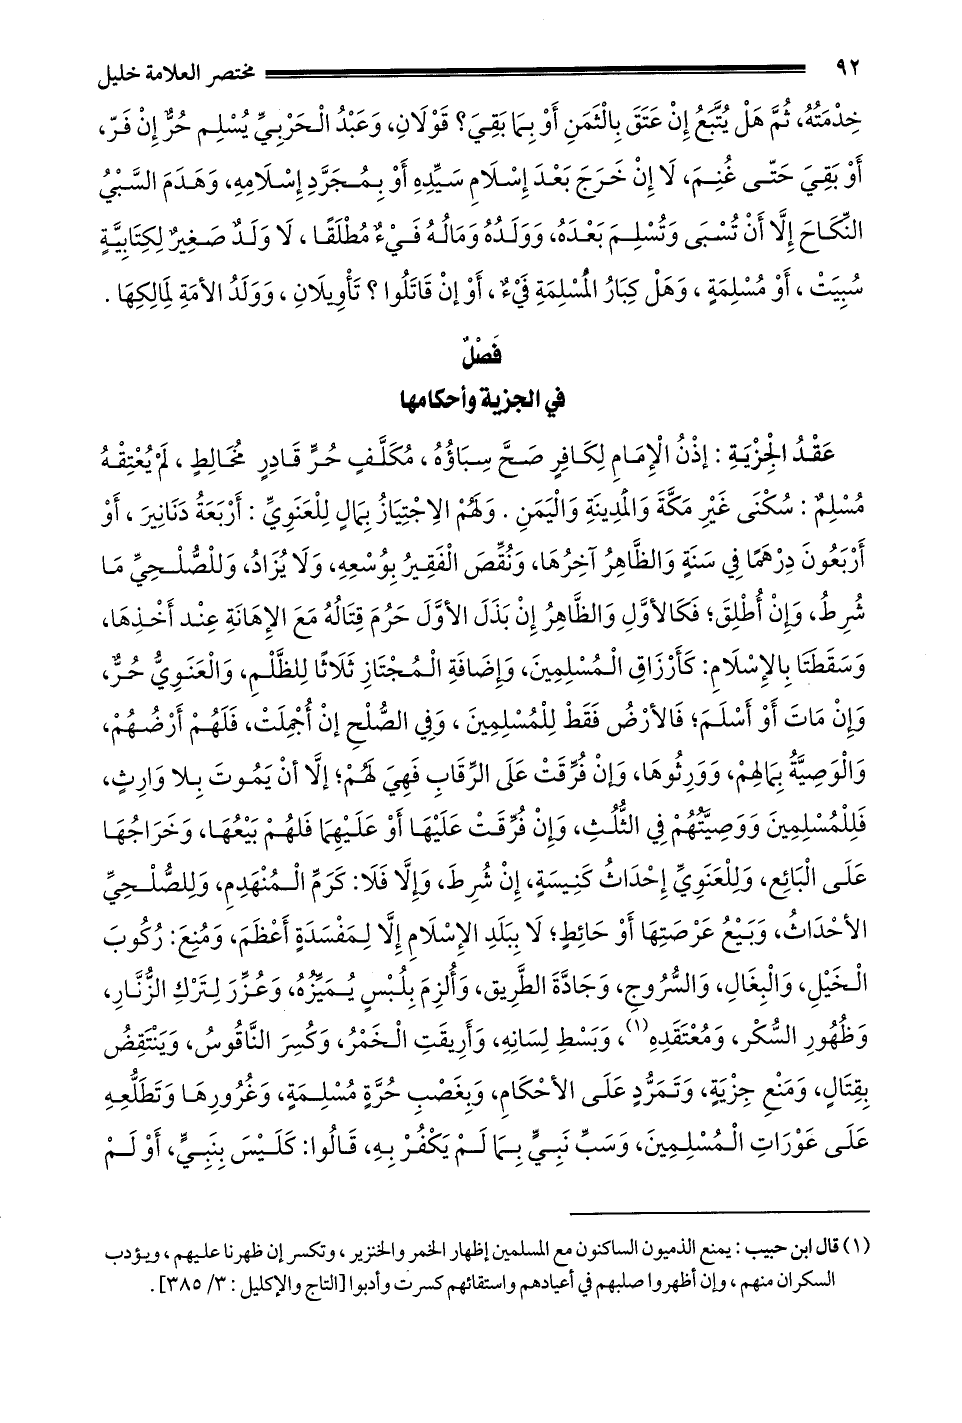 ٩٢ مختصر العلامة خليل
خِدْمَتُهُ، ثُمَّ هَلْ يُتَّبَعُ إِنْ عَتَقَ بِالثَّمَنِ أَوْ بِمَا بَقِيَ؟ قَوْلَانِ، وَعَبْدُ الْحَرْبِيِّ يُسْلِم حُرٌّ إِنْ فَرّ،
أَوْ بَقِيَ حَتّى غُنِمَ، لَا إِنْ خَرَجَ بَعْدَ إِسْلَامِ سَيِّدِهِ أَوْ بِمُجَرَّدِ إِسْلَامِهِ، وَهَدَمَ السَّبْيُ
النِّكَاحَ إِلَّا أَنْ تُسْبَى وَتُسْلِمَ بَعْدَهُ، وَوَلَدُهُ وَمَالُهُ فَيْءٌ مُطْلَقًا، لَا وَلَدٌ صَغِيرٌ لِكِتَابِيَّةٍ
سُبِيَتْ، أَوْ مُسْلِمَةٍ، وَهَلْ كِبَارُ الْمُسْلِمَةِ فَيْءٌ، أَوْ إِنْ قَاتَلُوا؟ تَأْوِيلَان، وَوَلَدُ الأَمَةِ لِمَالِكِهَا.
فَصْلٌ
في الجزية وأحكامها
عَقْدُ الْجِزْيَةِ: إِذْنُ الْإِمَامِ لِكَافِرٍ صَحَّ سِبَاؤُهُ، مُكَلَّفٍ حُرٍّ قَادِرٍ مُخَالِطٍ، لَمْ يُعْتِقْهُ
مُسْلِمٌ: سُكْنَى غَيْرِ مَكَّةَ وَالْمَدِينَةِ وَالْيَمَنِ. وَلَهُمْ الِاجْتِيَازُ بِمَالٍ لِلْعَنَوِيِّ: أَرْبَعَةُ دَنَانِيرَ، أَوْ
أَرْبَعُونَ دِرْهَمًا فِي سَنَةٍ وَالظَّاهِرُ آخِرُهَا، وَنُقِّصَ الْفَقِيرُ بِوُسْعِهِ، وَلَا يُزَادُ، وَلِلصُّلْحِيِّ مَا
شُرِطُ، وَإِنْ أُطْلِقَ؛ فَكَالأَوَّلِ وَالظَّاهِرُ إِنْ بَذَلَ الأَوَّلَ حَرُمَ قِتَالُهُ مَعَ الإِهَانَةِ عِنْد أَخْذِهَا،
وَسَقَطَتَا بِالإِسْلَامِ: كَأَرْزَاقِ الْمُسْلِمِينَ، وَإِضَافَةِ الْمُجْتَازِ ثَلَاثًا لِلظُّلْمِ، وَالْعَنَوِيُّ حُرٌّ،
وَإِنْ مَاتَ أَوْ أَسْلَمَ؛ فَالأَرْضُ فَقَطْ لِلْمُسْلِمِينَ، وَفِي الصُّلْحِ إِنْ أُجْمِلَتْ، فَلَهُمْ أَرْضُهُمْ،
وَالْوَصِيَّةُ بِمَالِهِمْ، وَوَرِثُوهَا، وَإِنْ فُرِّقَتْ عَلَى الرِّقَابِ فَهِيَ لَهُمْ؛ إِلَّا أَنْ يَمُوتَ بِلا وَارِثٍ،
فَلِلْمُسْلِمِينَ وَوَصِيَّتُهُمْ فِي الثُّلُثِ، وَإِنْ فُرِّقَتْ عَلَيْهَا أَوْ عَلَيْهِمَا فَلهُمْ بَيْعُهَا، وَخَرَاجُهَا
عَلَى الْبَائِعِ، وَلِلْعَنَوِيِّ إِحْدَاثُ كَنِيسَةٍ، إِنْ شُرِطَ، وَإِلَّا فَلَا: كَرَمِّ الْمُنْهَدِمِ، وَلِلصُّلْحِيِّ
الأَحْدَاثُ، وَبَيْعُ عَرْصَتِهَا أَوْ حَائِطٍ؛ لَا بِبَلَدِ الإِسْلَامِ إِلَّا لِمَفْسَدَةٍ أَعْظَمَ، وَمُنِعَ: رُكُوبَ
الْخَيْلِ، وَالْبِغَالِ، وَالسُّرُوجِ، وَجَادَّةَ الطَّرِيقِ، وَأُلْزِمَ بِلُبْسٍ يُمَيِّزُهُ، وَعُزِّرَ لِتَرْكِ الزُّنَّارِ،
وَظُهُورِ السُّكْرِ، وَمُعْتَقَدِهِ(١)، وَبَسْطِ لِسَانِهِ، وَأُرِيقَتِ الْخَمْرُ، وَكُسِرَ النَّاقُوسُ، وَيَنْتَقِضُ
بِقِتَالٍ، وَمَنْعِ جِزْيَةٍ، وَتَمَرُّدٍ عَلَى الأَحْكَامِ، وَبِغَصْبِ حُرَّةٍ مُسْلِمَةٍ، وَغُرُورِهَا وَتَطَلُّعِهِ
عَلَى عَوْرَاتِ الْمُسْلِمِينَ، وَسَبِّ نَبِيٍّ بِمَا لَمْ يَكْفُرْ بِهِ، قَالُوا: كَلَيْسَ بِنَبِيٍّ، أَوْ لَمْ
(١) قال ابن حبيب: يمنع الذميون الساكنون مع المسلمين إظهار الخمر والخنزير، وتكسر إن ظهرنا عليهم، ويؤدب
السكران منهم، وإن أظهروا صلبهم في أعيادهم واستقائهم كسرت وأدبوا [التاج والإكليل: ٣/ ٣٨٥].